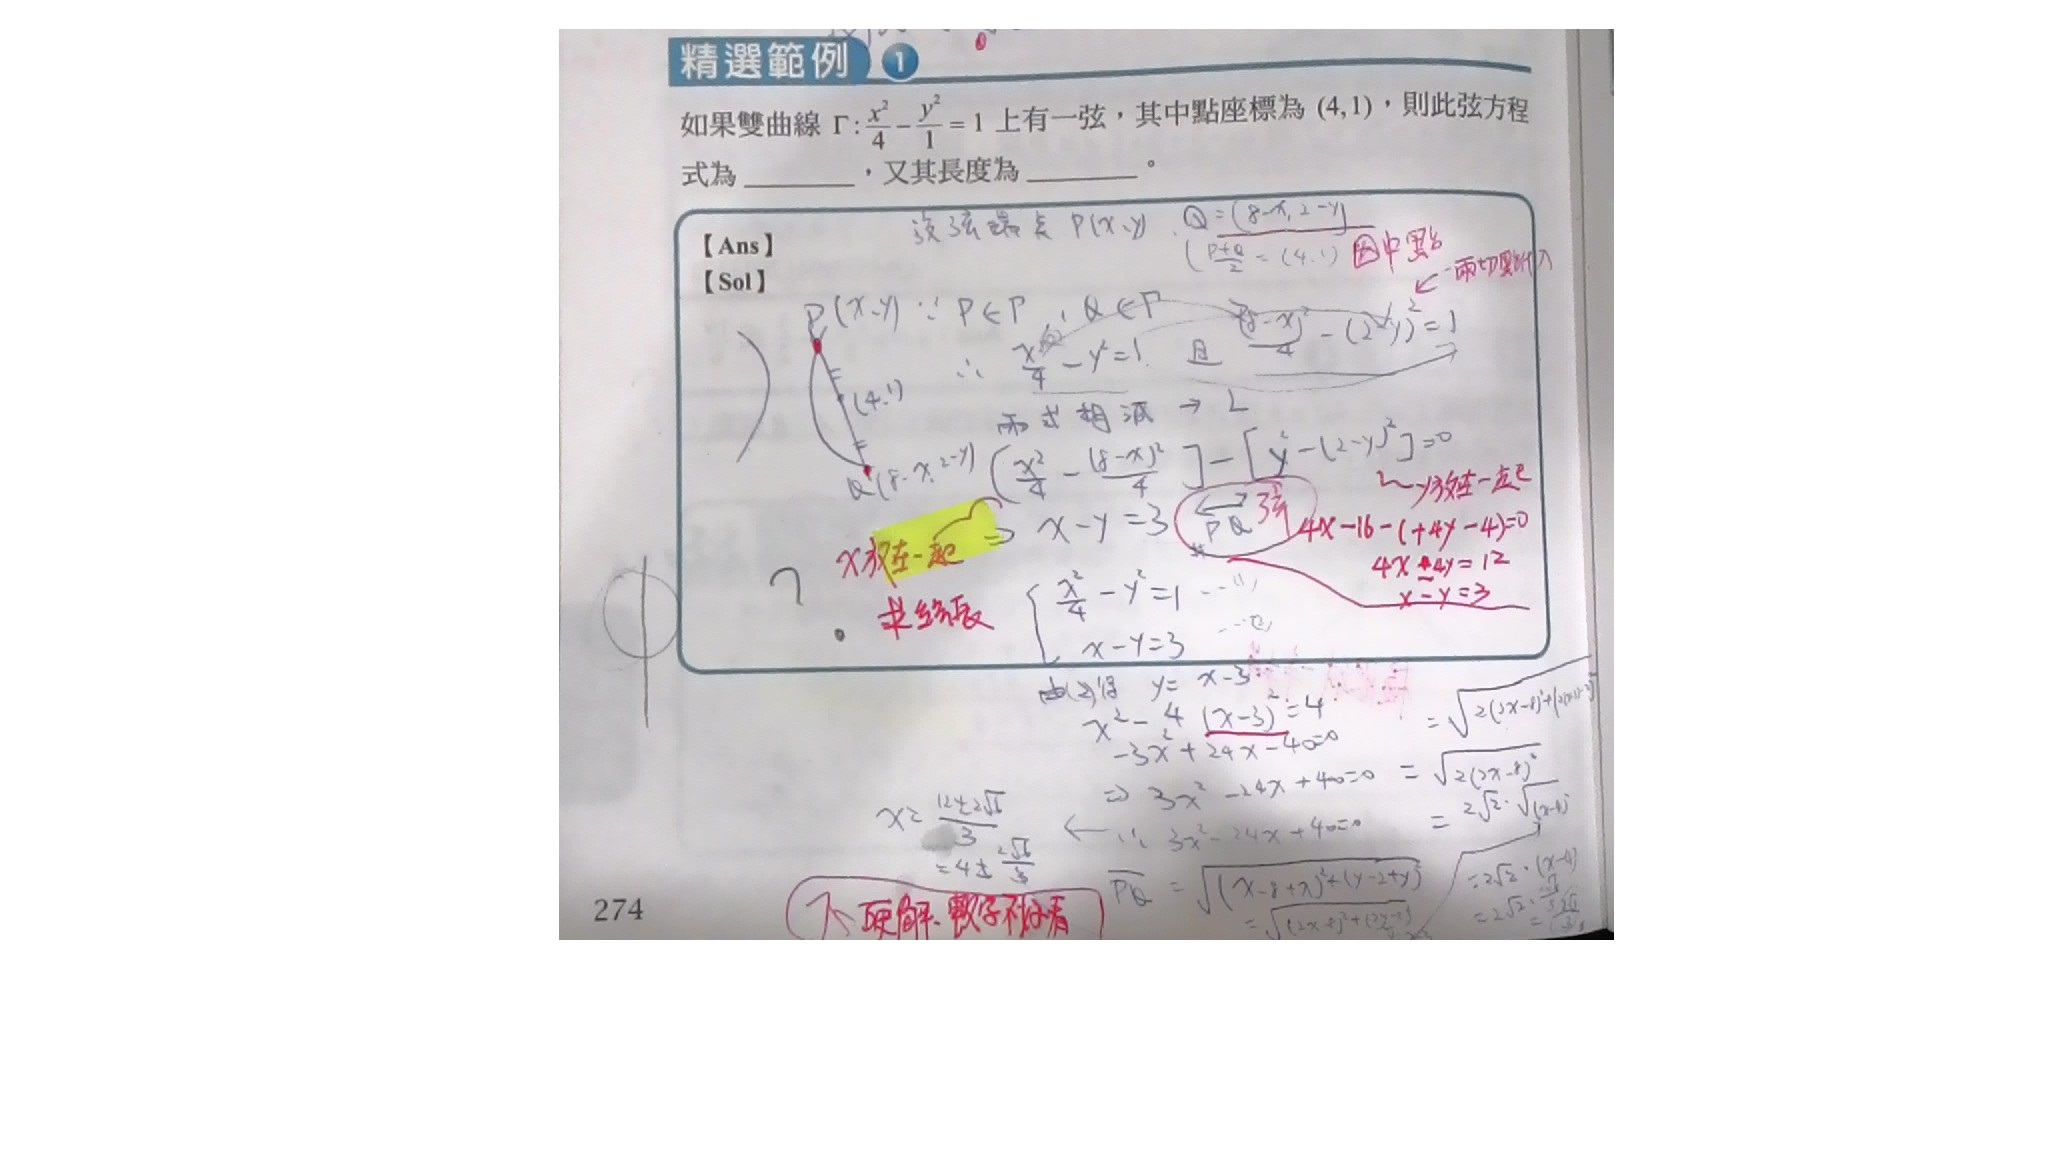 精選範例 1
如果雙曲線 Γ: x²/4 − y²/1 = 1 上有一弦，其中點座標為 (4,1)，則此弦方程
式為 ________，又其長度為 ________。
【Ans】
設弦端点 P(x、y)、Q=(8-x, 2-y)
(P+Q/2 = (4.1) 因中點
【Sol】
兩切點代入
P(x、y) ∵ P∈Γ, Q∈Γ
∴ x²/4 − y²=1 且 (8-x)²/4 − (2-y)²=1
(4.1)
兩式相減 → L
Q(8-x, 2-y)
[x²/4 − (8-x)²/4] − [y² − (2-y)²]=0
y放在一起
x放在一起
⇒ x−y=3 PQ 弦
4x−16−(+4y−4)=0
4x−4y=12
x−y=3
?
求弦長
x²/4 − y²=1 ---(1)
x−y=3 ---(2)
由(2)得 y= x−3
x²−4(x−3)²=4
−3x²+24x−40=0
⇒ 3x²−24x+40=0
∴ 3x²−24x+40=0
x= 12±2√6/3
=4±2√6/3
PQ = √(x−8+x)²+(y−2+y)²
=√(2x−8)²+(2y−2)²
= √2(2x−8)²
= 2√2·√(x−4)²
=2√2·(x−4)
硬解、數字不好看
274